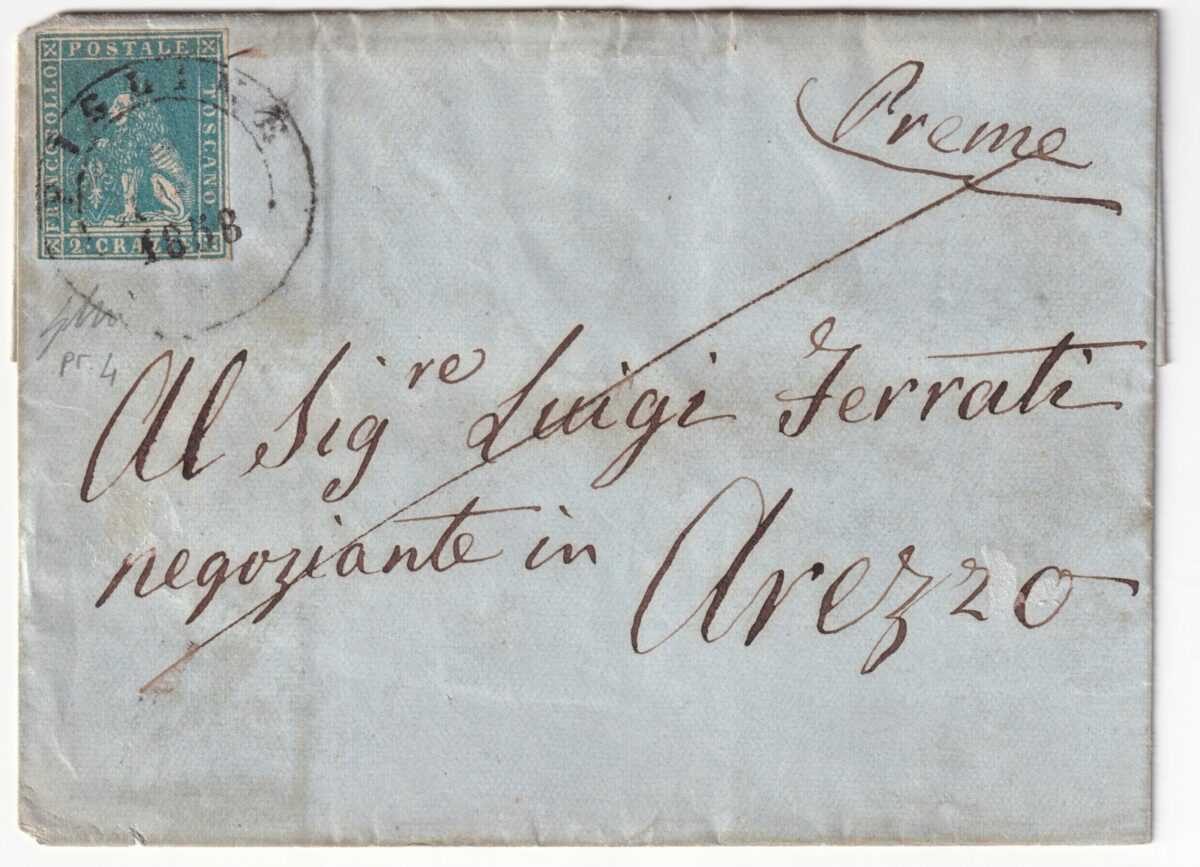 POSTALE
FRANCOBOLLO
TOSCANO
2 CRAZIE
1858
Preme
pr. 4
Al Sig.re Luigi Ferrati
negoziante in Arezzo